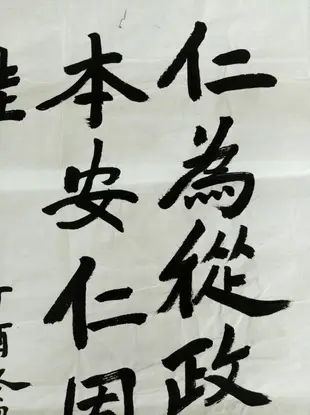 仁為從政
本安仁
丁酉冬